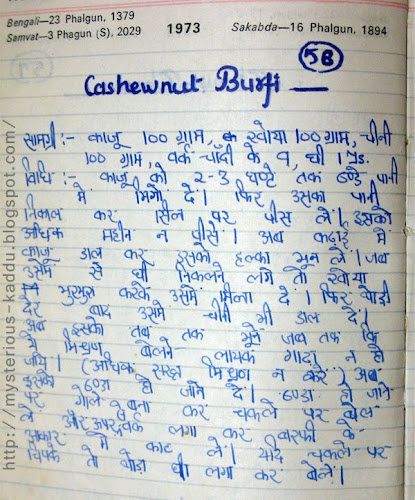 Bengali—23 Phalgun, 1379
Samvat—3 Phagun (S), 2029
1973
Sakabda—16 Phalgun, 1894
58
Cashewnut Burfi
सामग्री :- काजू 100 ग्राम, खोया 100 ग्राम, चीनी
100 ग्राम, वर्क-चाँदी के व, घी 1
विधि :- काजू को 2-3 घण्टे तक ठण्डे पानी
में भिगो दें। फिर उसका पानी
निकाल कर सिल पर पीस लें। इसको
अधिक महीन न पीसें। अब कढ़ाई में
काजू डाल कर इसको हल्का भून लें। जब
उसमें से घी निकलने लगे तो खोया
भुरभुरा करके उसमें मिला दें। फिर थोड़ी
देर बाद उसमें चीनी भी डाल दें।
अब इसको तब तक भूनें जब तक कि
ये मिश्रण बेलने लायक गाढ़ा न हो
जाये। (अधिक सख्त मिश्रण न करें) अब
इसको ठण्डा हो जाने दें। ठण्डा हो जाने
पर गोले बना कर चकले पर बेल
लें और ऊपर वर्क लगा कर बरफी के
आकार में काट लें। यदि चकले पर
चिपके तो थोड़ा घी लगा कर बेलें।
http://mysterious-kaddu.blogspot.com/